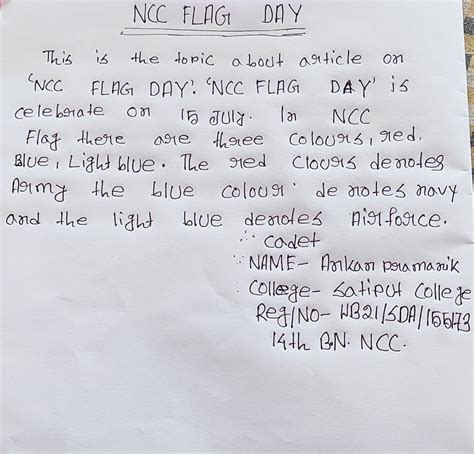 NCC FLAG DAY
This is the topic about article on
'NCC FLAG DAY'. 'NCC FLAG DAY' is
celebrate on 15 July. In NCC
Flag there are three colours, red,
Blue, Light blue. The red Clours denotes
Army the blue colour denotes navy
and the light blue denotes Airforce.
∴ Cadet
∵ NAME- Ankan pramanik
: College- Satiput College
Reg/NO- WB21/SDA/155473
14th BN. NCC.